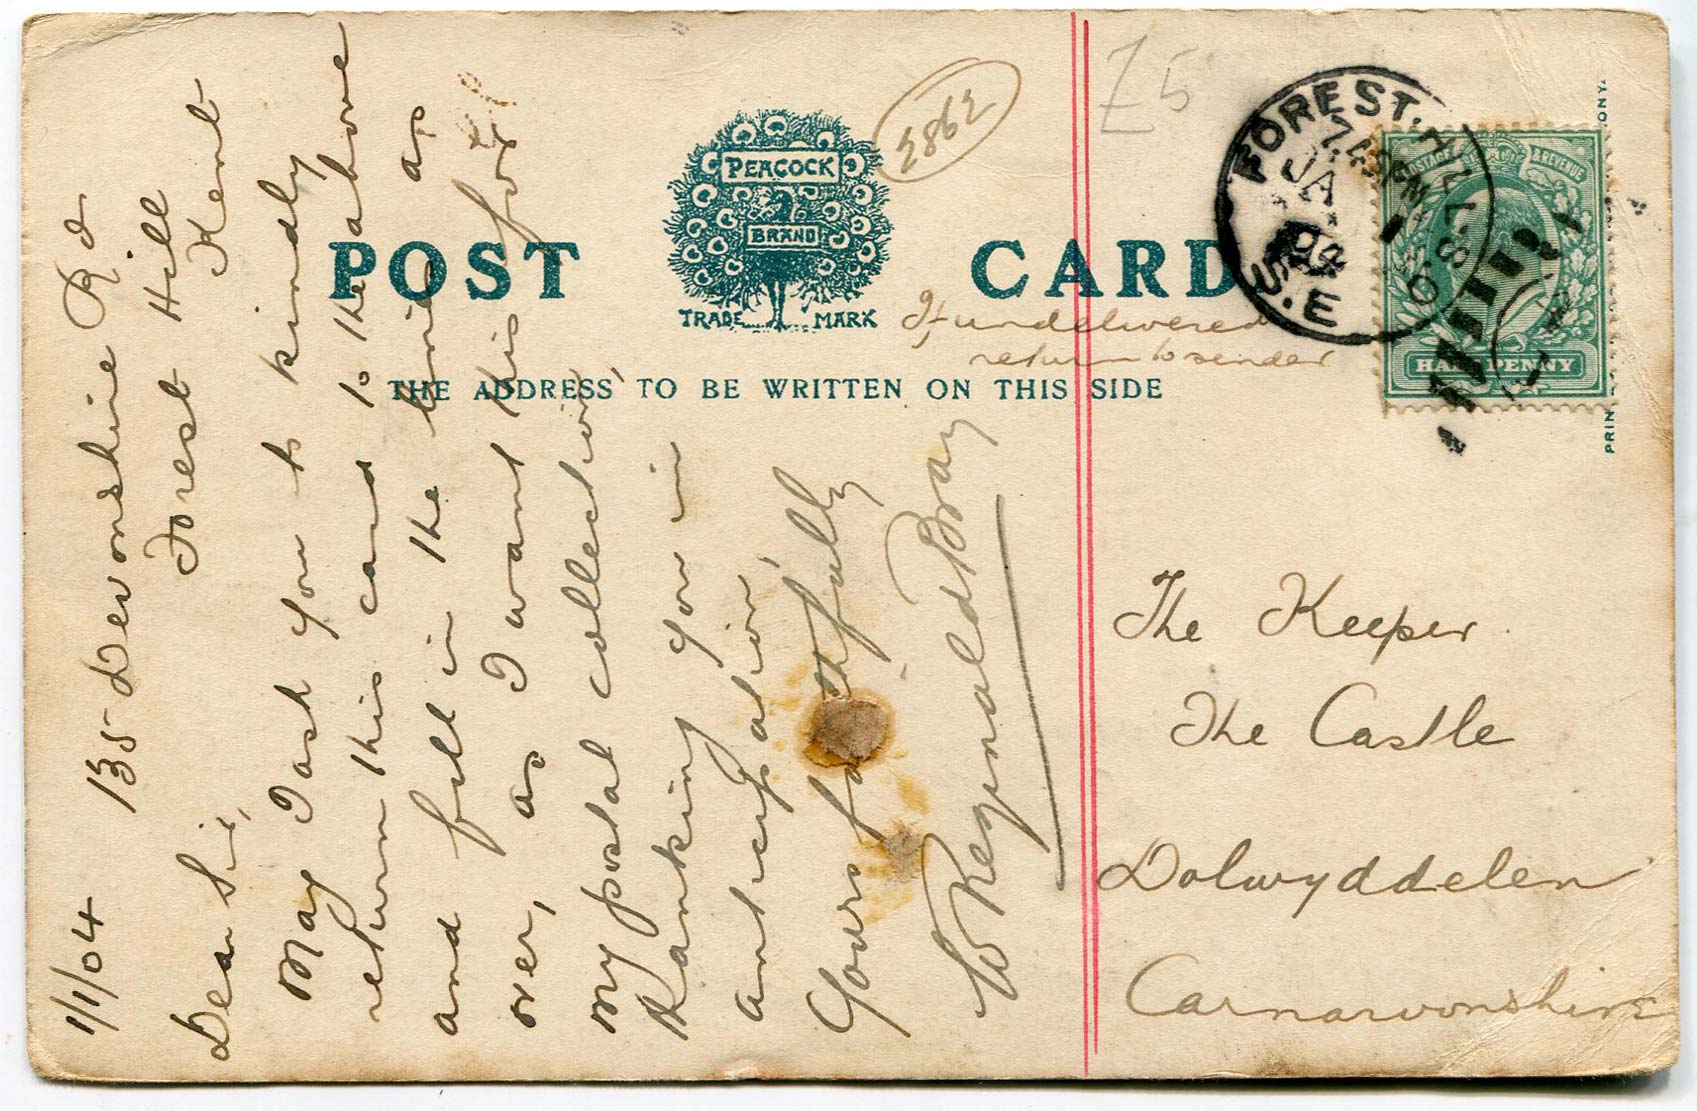 1/1/04 135 Devonshire Rd
Forest Hill
Kent
Dear Sir,
May I ask you to kindly
return this card to the above
and fill in the lines as
over, as I want this for
my postal collection,
thanking you in
anticipation,
Yours faithfully
W Reginald Bray
PEACOCK
BRAND
TRADE MARK
POST CARD
THE ADDRESS TO BE WRITTEN ON THIS SIDE
2862
£5
If undelivered
return to sender
FOREST. HILL. S.O
S.E
JA 1
04
POSTAGE & REVENUE
HALFPENNY
The Keeper
The Castle
Dolwyddelen
Carnarvonshire